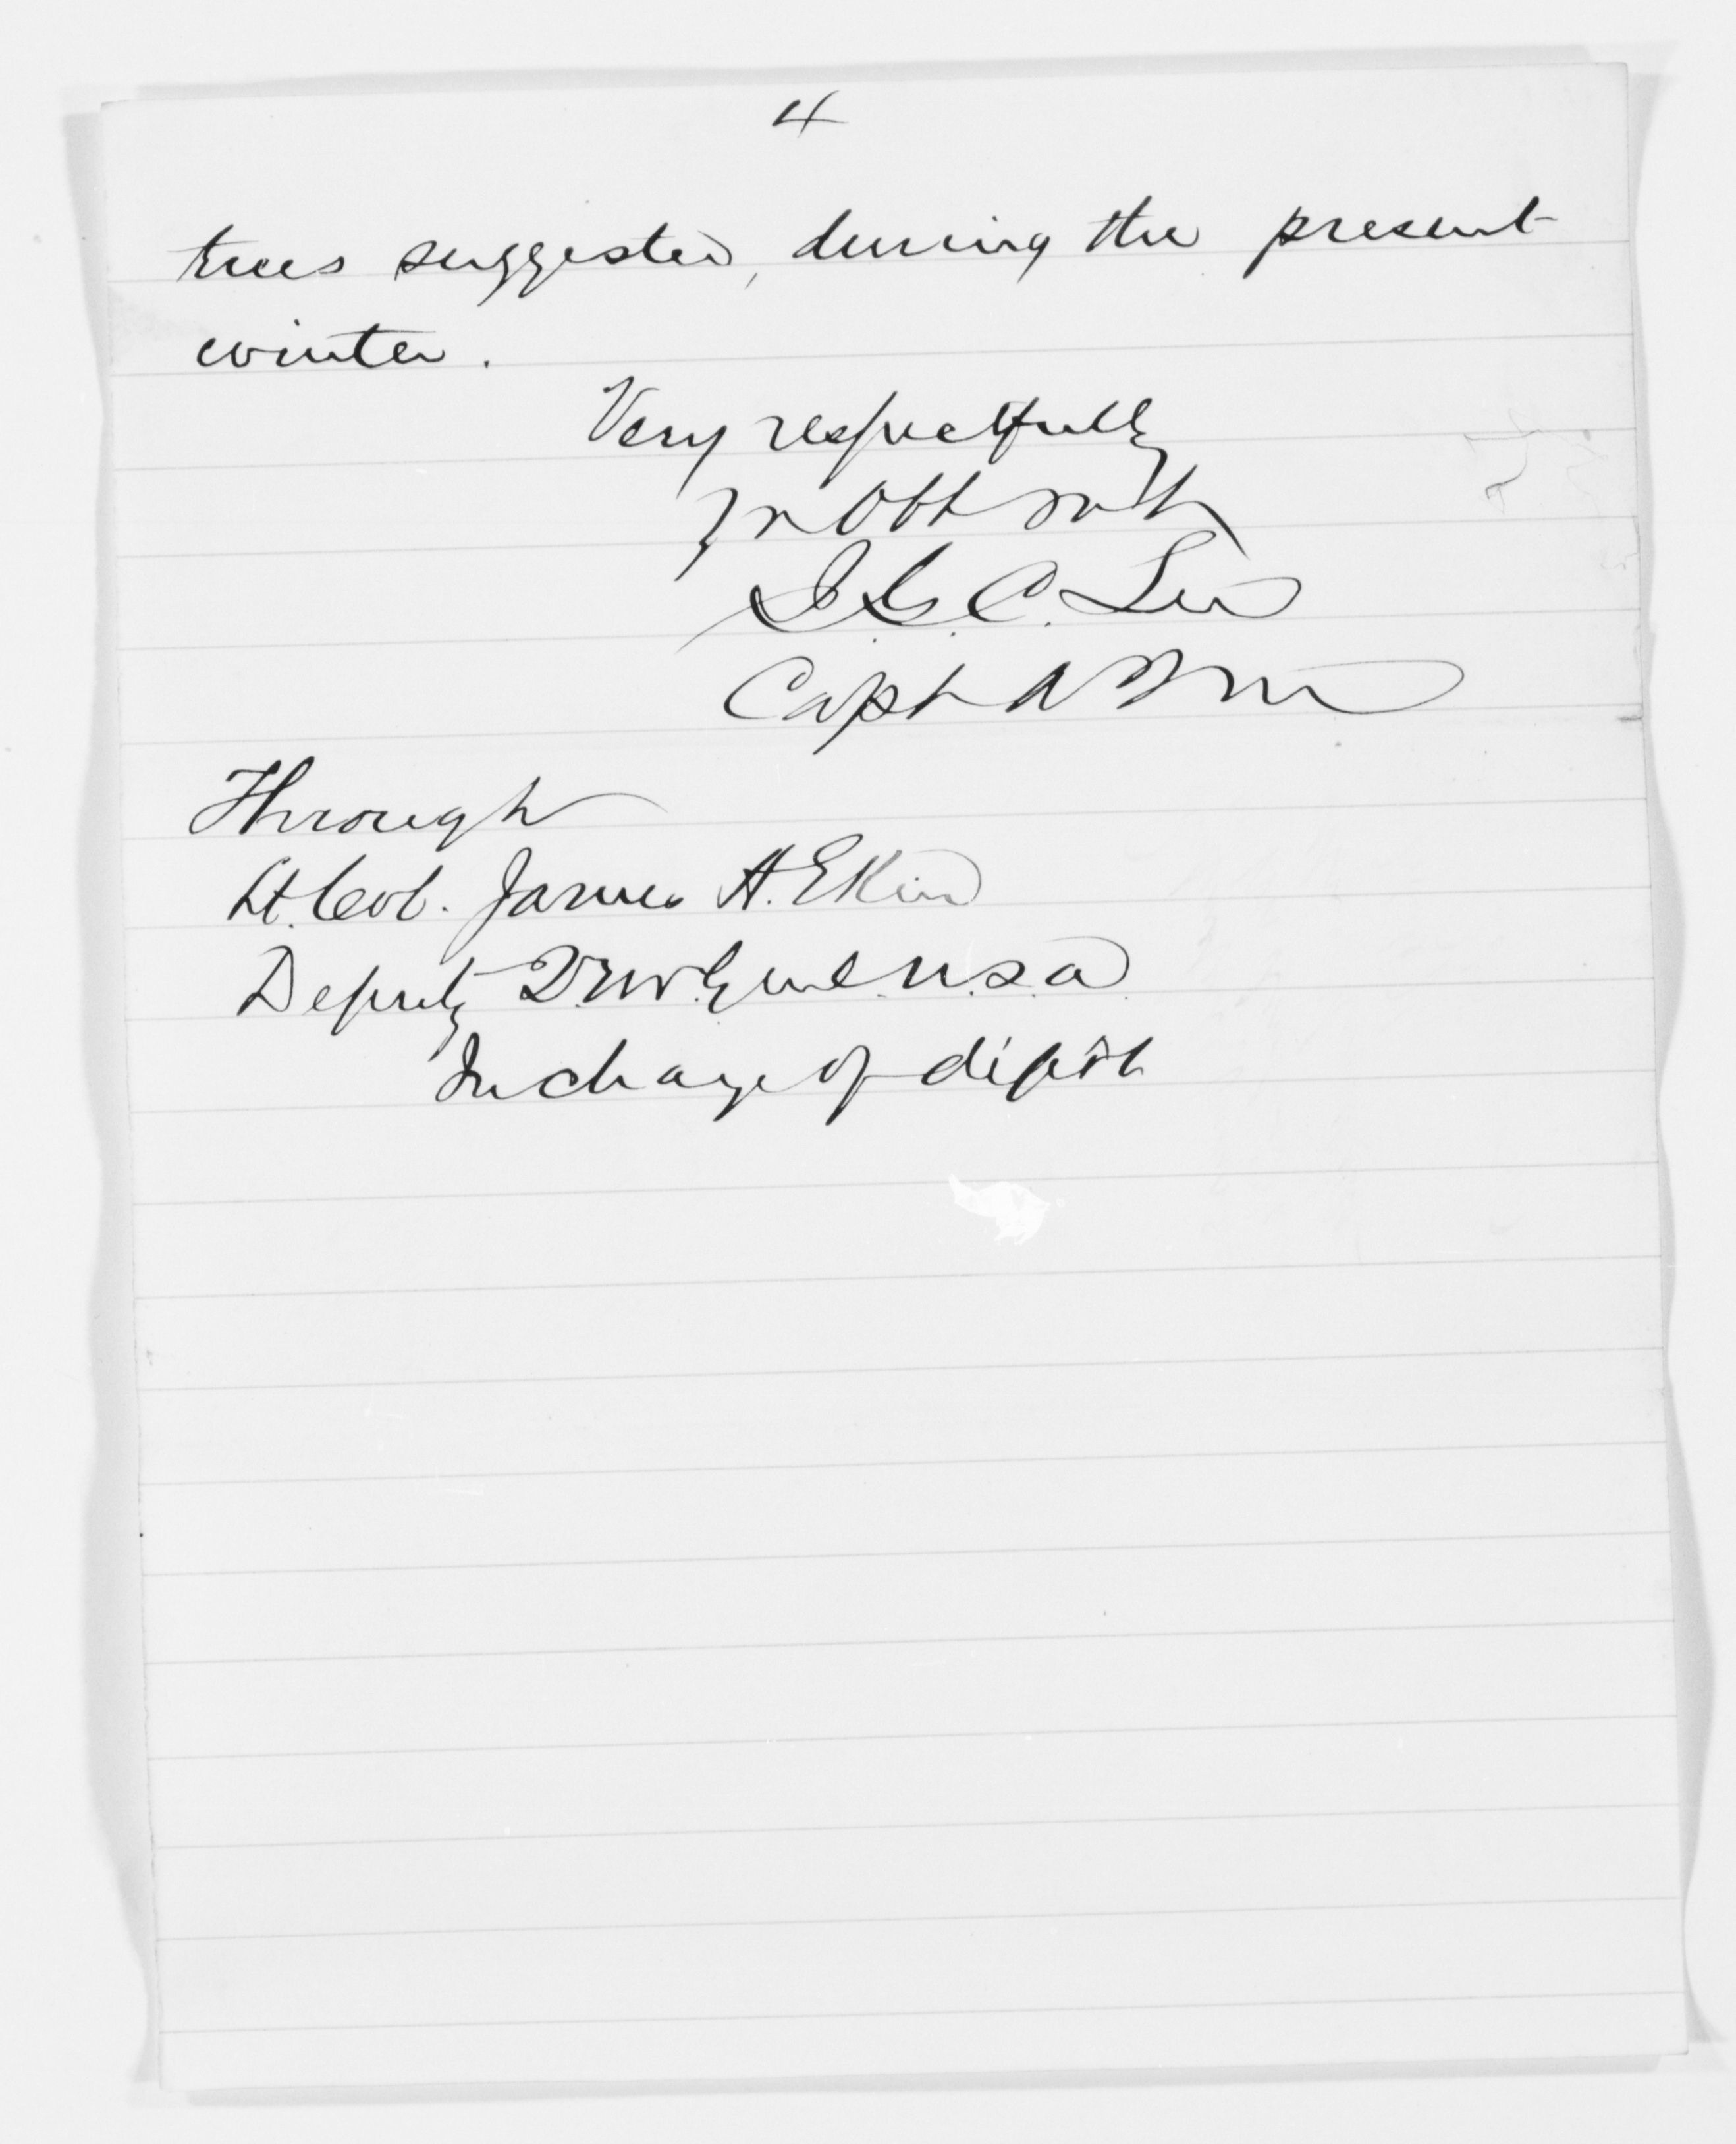 4
trees suggested, during the present
winter.
Very respectfully
Yr Obt Svt
J. G. C. Lee
Capt A Q M
Through
Lt. Col. James A. Ekin
Deputy Q. M. Genl. U. S. A.
In charge of dépôt